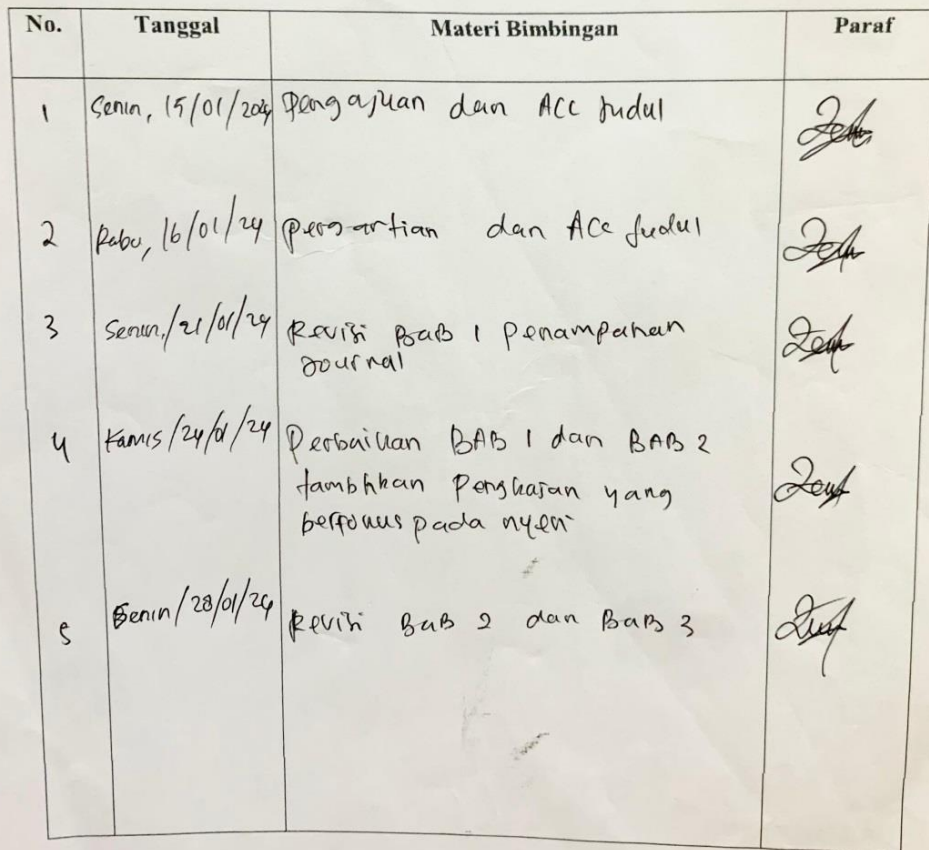 No. Tanggal Materi Bimbingan Paraf
1 Senin, 15/01/2024 Pengajuan dan ACC Judul
2 Rabu, 16/01/24 dan ACC Judul
3 Senin,/21/01/24 Revisi BaB 1 Penampahan
Journal
4 Kamis/24/01/24 Perbaikan BAB 1 dan BAB 2
tambhkan Pengkajian yang
berfokus pada nyeri
5 Senin/28/01/24 Revisi BaB 2 dan BaB 3